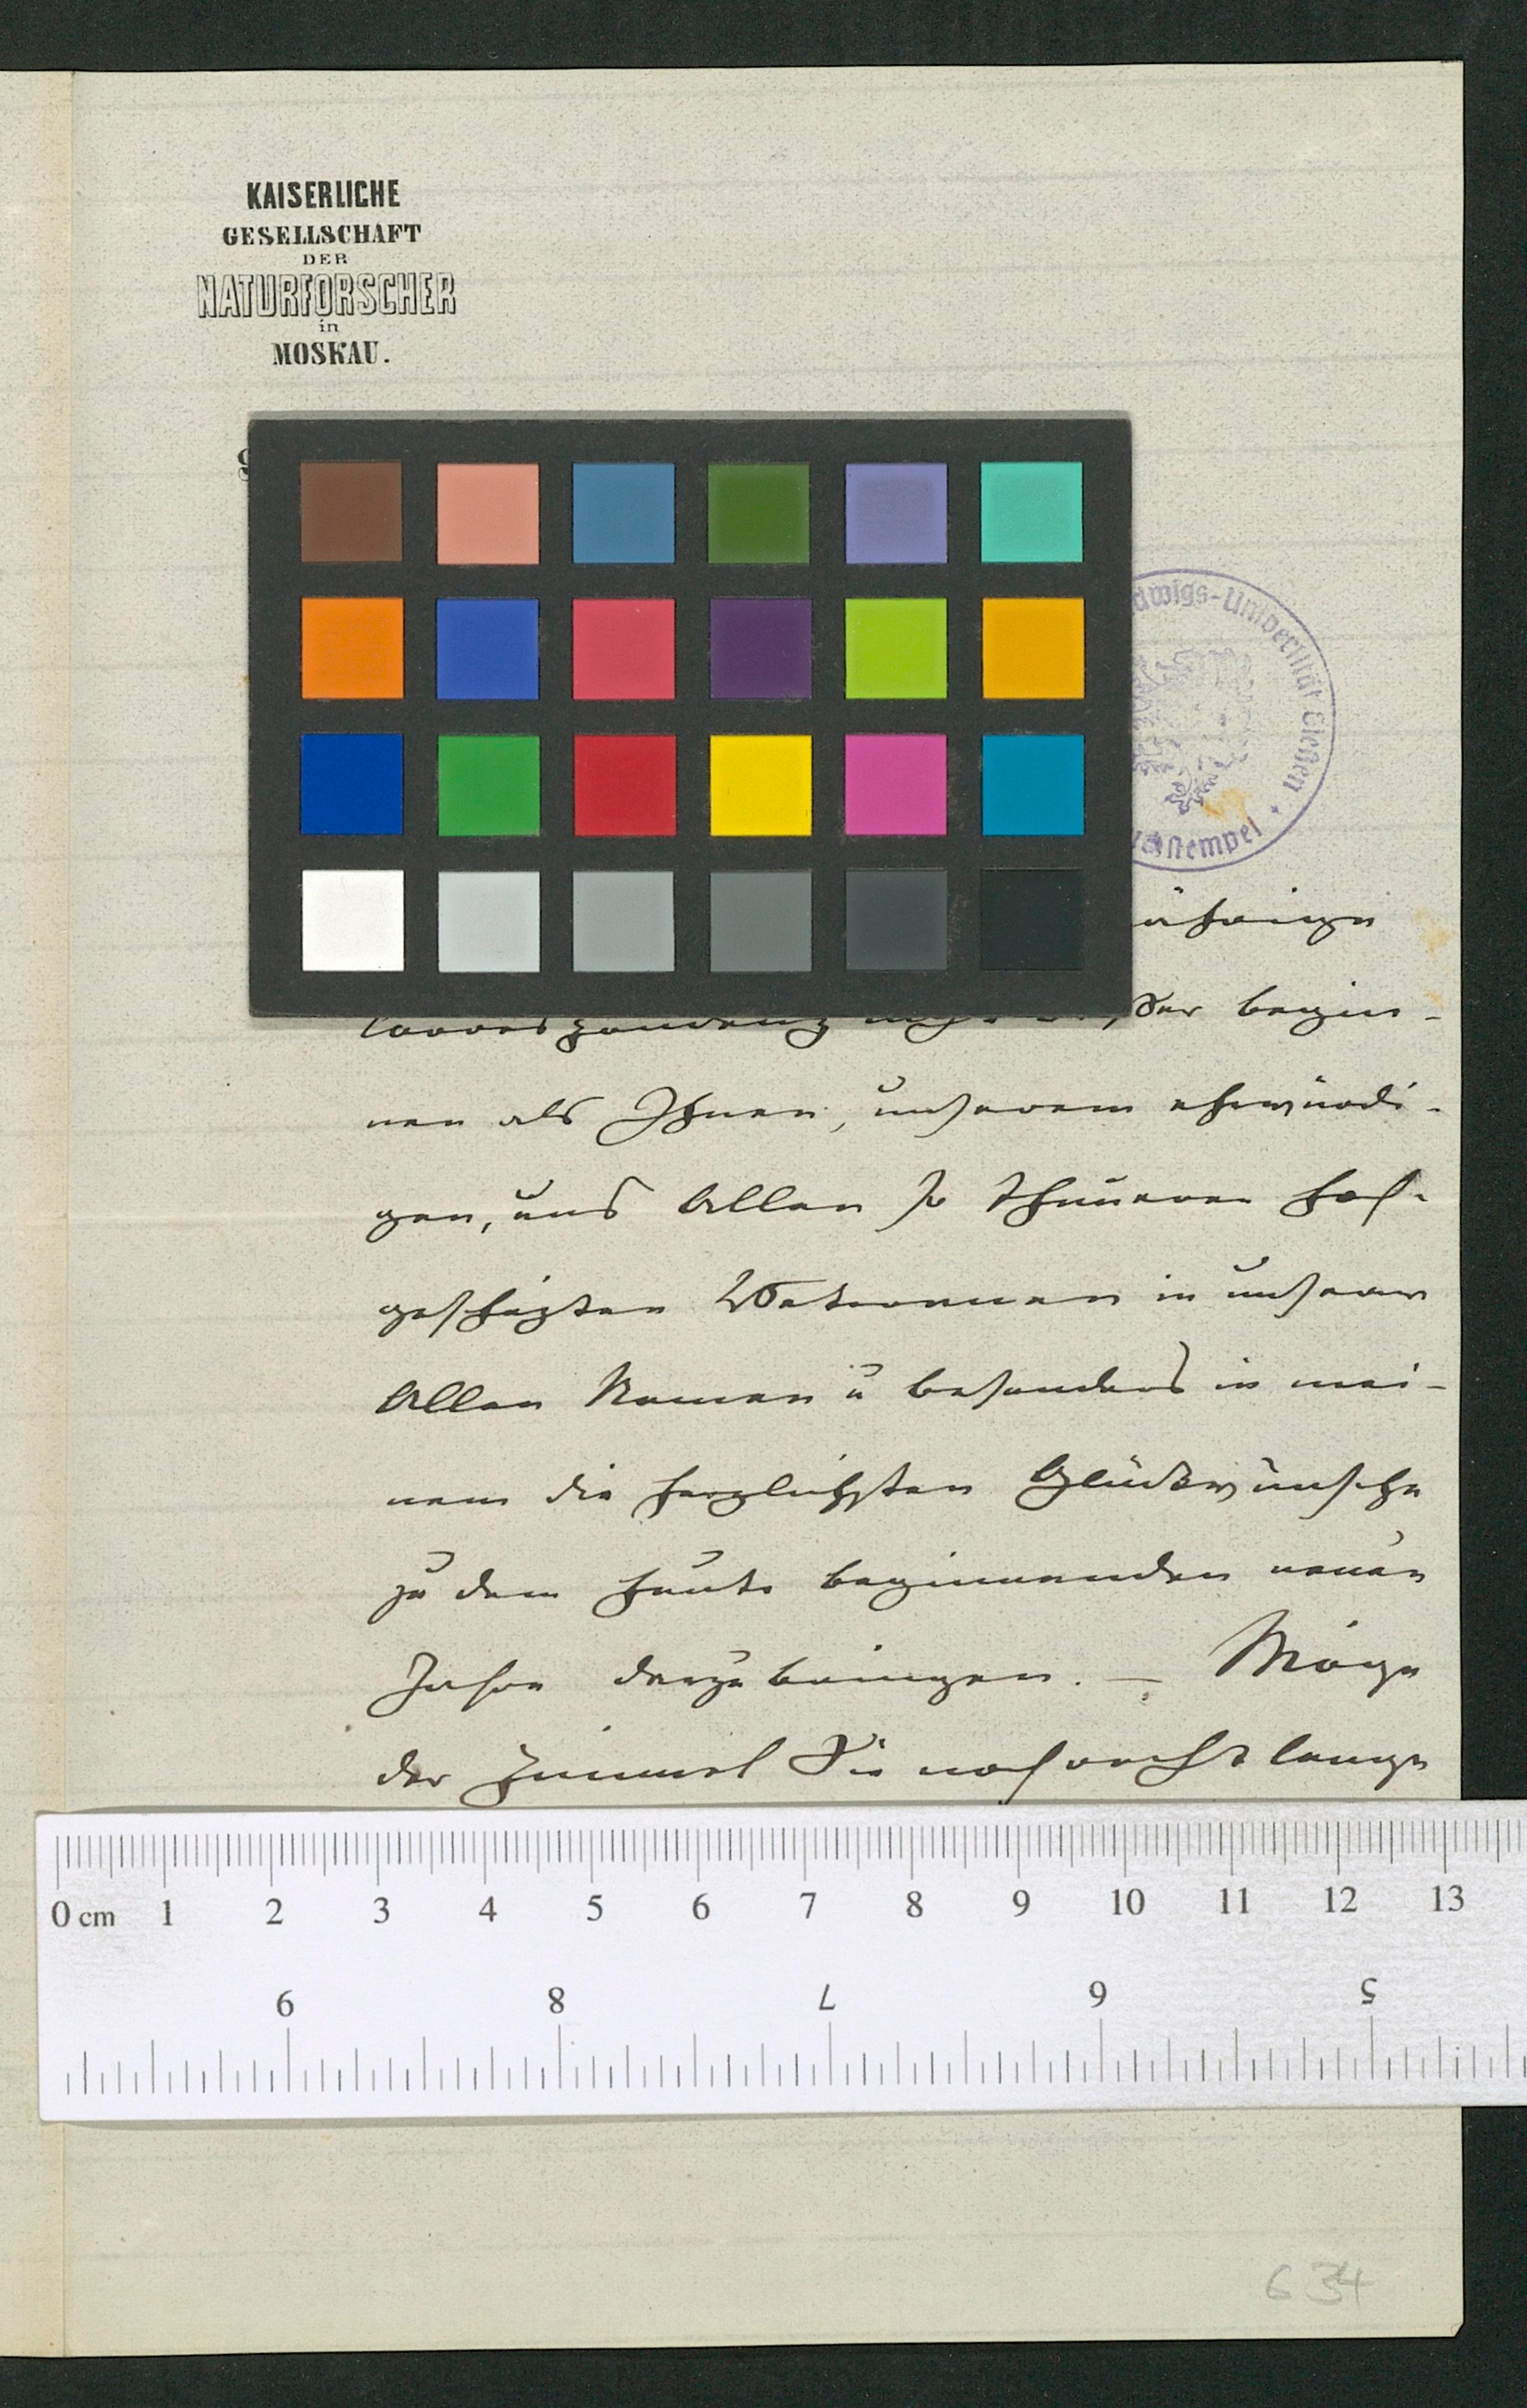 KAISERLICHE
GESELLSCHAFT
DER
NATURFORSCHER
in
MOSKAU.
dwigs-Universität Gießen *
stempel
ährige
Correspondenz begin-
nen als Ihnen, unserem ehrwürdi-
gen, uns Allen so theueren hoch-
geschäzten Veteranen in unserer
Allen Namen u besonders in mei-
nem die herzlichsten Glückwünsche
zu dem heute beginnenden neuen
Jahre darzubringen. – Möge
der Himmel Sie noch recht lange
0 cm 1 2 3 4 5 6 7 8 9 10 11 12 13
9 8 7 6 5
634